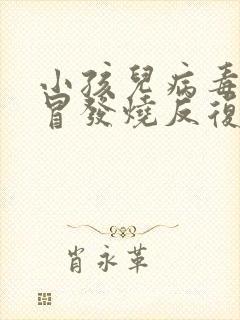 小孩兒病毒
冒發燒反復
肖永革